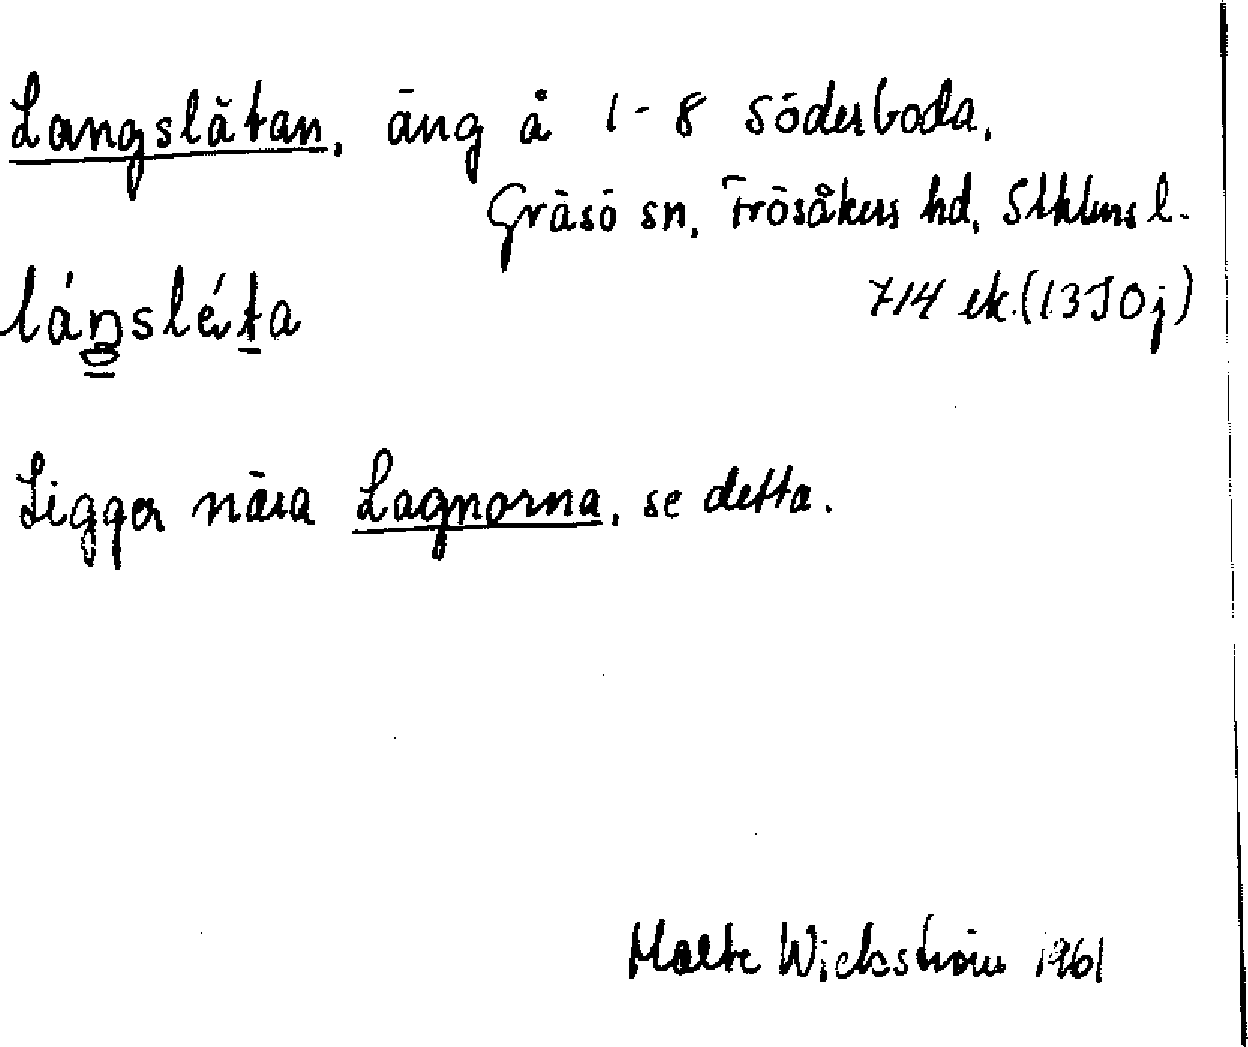 Langslätan, äng å 1-8 Söderboda,
Gräsö sn, Frösåkers hd, Sthlms l.
714 ek. (13J0j)
láŋsléta
Ligger nära Lagnorna, se detta.
Malte Wickström 1961